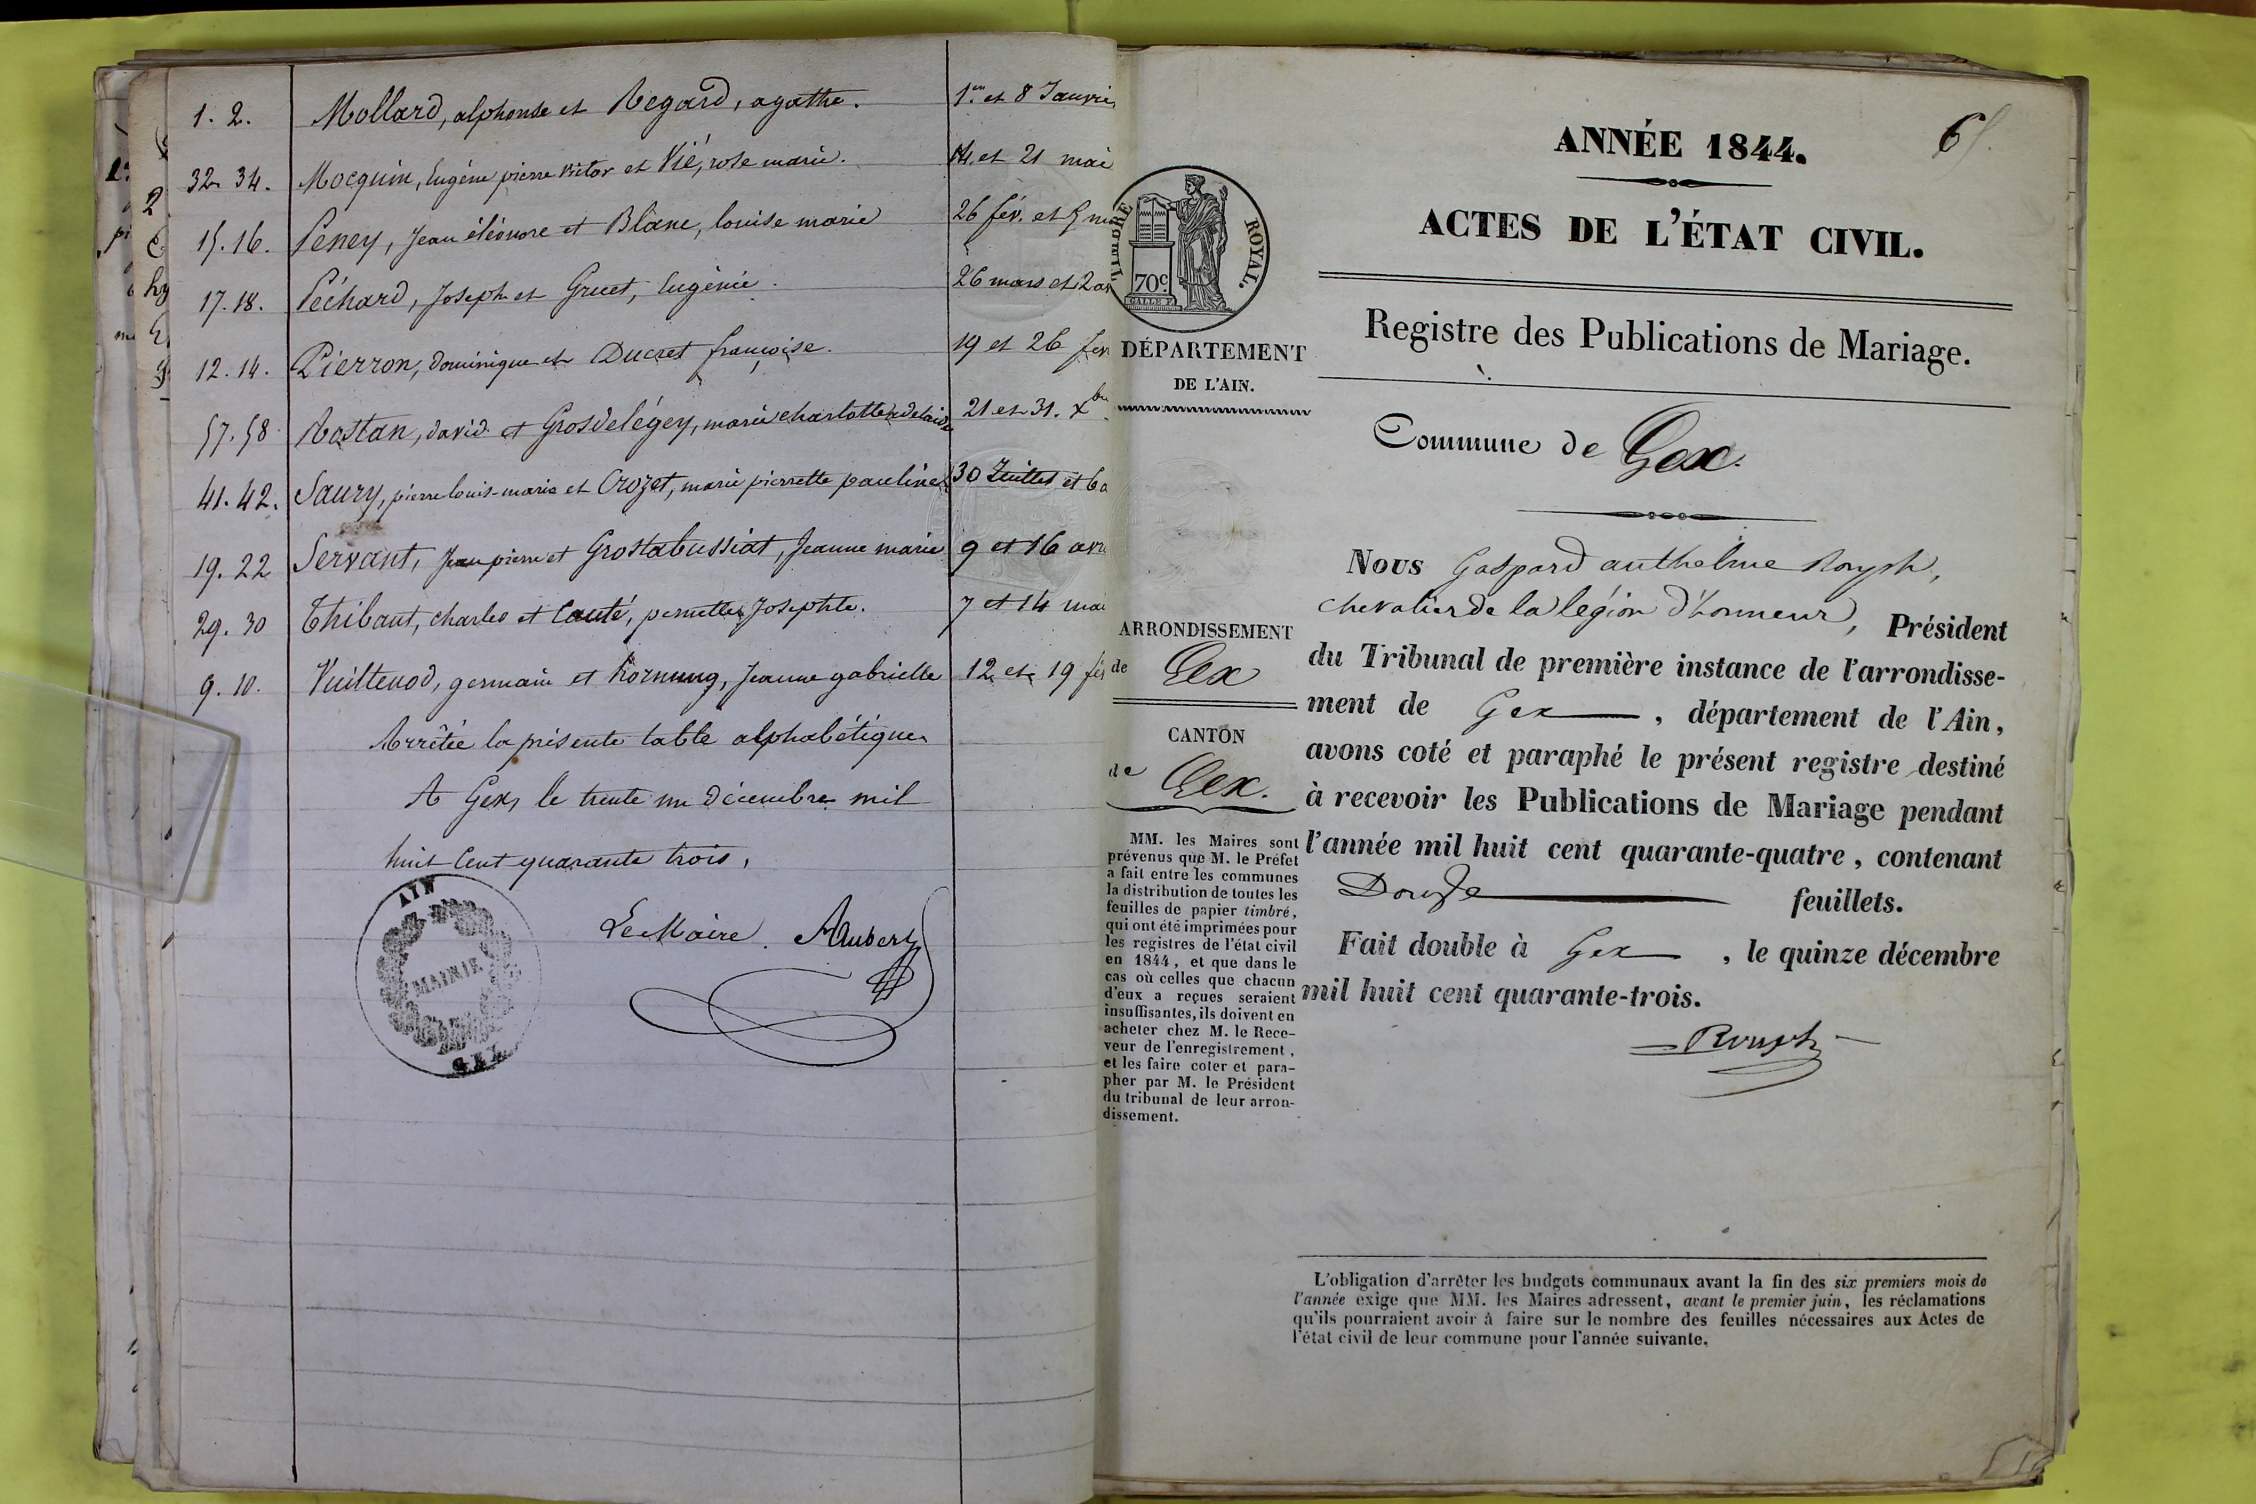 1. 2. Mollard, alphonse et Regard, agathe. 1er et 8 Janvie
32. 34. Mocquin, Eugène pierre victor et Vié, rose marie. 14 et 21 mai
15. 16. Peney, Jean éléonore et Blanc, louise marie 26 fév. et 5 m
17. 18. Péchard, Joseph et Gruet, Eugénie. 26 mars et 2 a
12. 14. Pierron, dominique et Ducret françoise. 19 et 26 fev
57. 58 Rostan, david et Grosdelégey, marie charlotte adelaide 21 et 31. Xbre
41. 42. Saury, pierre louis-marie et Crozet, marie pierrette pauline 30 Juillet et 6 a
19. 22 Servant, Jean pierre et Grostabussiat, Jeanne marie 9 et 16 avr
29. 30 Thibaut, charles et Cauté, pernette Josephte. 7 et 14 mai
9. 10. Vuillenod, germain et Hornung, Jeanne gabrielle 12 et 19 fév
Arrêtée la présente table alphabétique
A Gex, le trente un décembre mil
huit cent quarante trois,
Le Maire. Aubert
AIN
MAIRIE
GEX
6
ANNÉE 1844.
ACTES DE L'ÉTAT CIVIL.
Registre des Publications de Mariage.
TIMBRE ROYAL.
70c.
DÉPARTEMENT
DE L'AIN.
Commune de Gex.
ARRONDISSEMENT
de Gex
CANTON
de Gex.
MM. les Maires sont
prévenus que M. le Préfet
a fait entre les communes
la distribution de toutes les
feuilles de papier timbré,
qui ont été imprimées pour
les registres de l'état civil
en 1844, et que dans le
cas où celles que chacun
d'eux a reçues seraient
insuffisantes, ils doivent en
acheter chez M. le Rece-
veur de l'enregistrement,
et les faire coter et para-
pher par M. le Président
du tribunal de leur arron-
dissement.
Nous Gaspard anthelme Rouph,
chevalier de la légion d'honneur, Président
du Tribunal de première instance de l'arrondisse-
ment de Gex, département de l'Ain,
avons coté et paraphé le présent registre destiné
à recevoir les Publications de Mariage pendant
l'année mil huit cent quarante-quatre, contenant
Douze feuillets.
Fait double à Gex, le quinze décembre
mil huit cent quarante-trois.
Rouph
L'obligation d'arrêter les budgets communaux avant la fin des six premiers mois de
l'année exige que MM. les Maires adressent, avant le premier juin, les réclamations
qu'ils pourraient avoir à faire sur le nombre des feuilles nécessaires aux Actes de
l'état civil de leur commune pour l'année suivante.